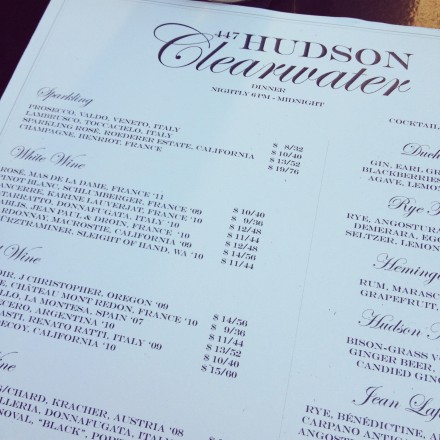 447 HUDSON
Clearwater
DINNER
NIGHTLY 6PM - MIDNIGHT
Sparkling
PROSECCO, VALDO, VENETO, ITALY $ 8/32
LAMBRUSCO, TOCCACIELO, ITALY $ 10/40
SPARKLING ROSÉ, ROEDERER ESTATE, CALIFORNIA $ 13/52
CHAMPAGNE, HENRIOT, FRANCE $ 19/76
White Wine
ROSÉ, MAS DE LA DAME, FRANCE '11 $ 10/40
PINOT BLANC, SCHLUMBERGER, FRANCE $ 9/36
SANCERRE, KARINE LAUVERJAT, FRANCE '10 $ 12/48
CATARRATTO, DONNAFUGATA, ITALY $ 11/44
CHABLIS, JEAN PAUL & DROIN, FRANCE '10 $ 12/48
CHARDONNAY, MACROSTIE, CALIFORNIA '09 $ 14/56
GEWÜRZTRAMINER, SLEIGHT OF HAND, WA '10 $ 11/44
Wine
NOIR, J CHRISTOPHER, OREGON '09 $ 14/56
CHÂTEAU MONT REDON, FRANCE '10 $ 9/36
LA MONTESA, SPAIN '07 $ 11/44
ARGENTINA '10 $ 13/52
ASTI, RENATO RATTI, ITALY '09 $ 10/40
DECOY, CALIFORNIA '10 $ 15/60
Wine
KRACHER, AUSTRIA '08
DONNAFUGATA,
"BLACK",
COCKTAIL
GIN, EARL
BLACKBERRIES
AGAVE, LEMON
Rye
RYE, ANGOSTURA
DEMERARA,
SELTZER, LEMON
Heming
RUM, MARASC
GRAPEFRUIT,
Hudson
BISON-GRASS
GINGER BEER,
CANDIED GINGER
Jean
RYE, BÉNÉDICTINE,
CARPANO ANTI